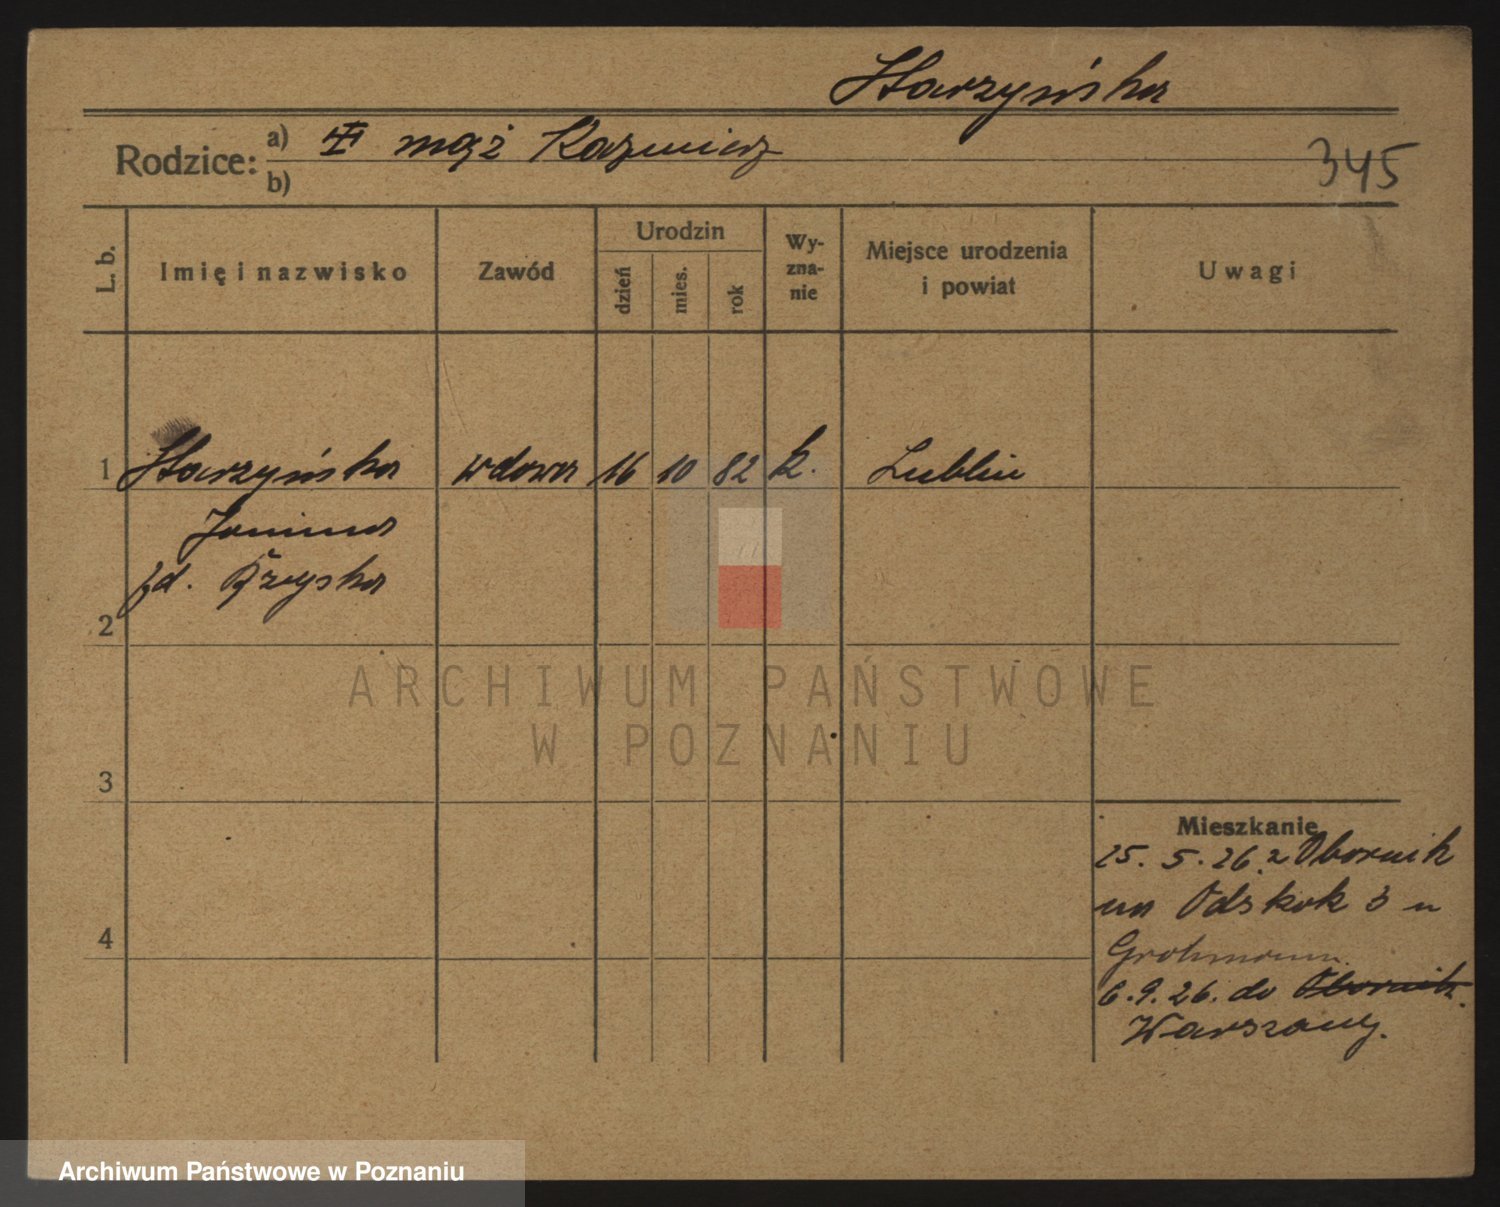 Starzyńska
Rodzice: a) II mąż Kazmierz
b)
345
L. b.
Imię i nazwisko
Zawód
Urodzin
dzień
mies.
rok
Wy-
zna-
nie
Miejsce urodzenia
i powiat
Uwagi
1 Starzyńska wdowa 16 10 82 k. Lublin
Janina
2
ARCHIWUM PAŃSTWOWE
W POZNANIU
3
4
Mieszkanie
25. 5. 26. z Obornik
na Odskok 3 u
6. 9. 26. do Obornik.
Warszawy.
Archiwum Państwowe w Poznaniu